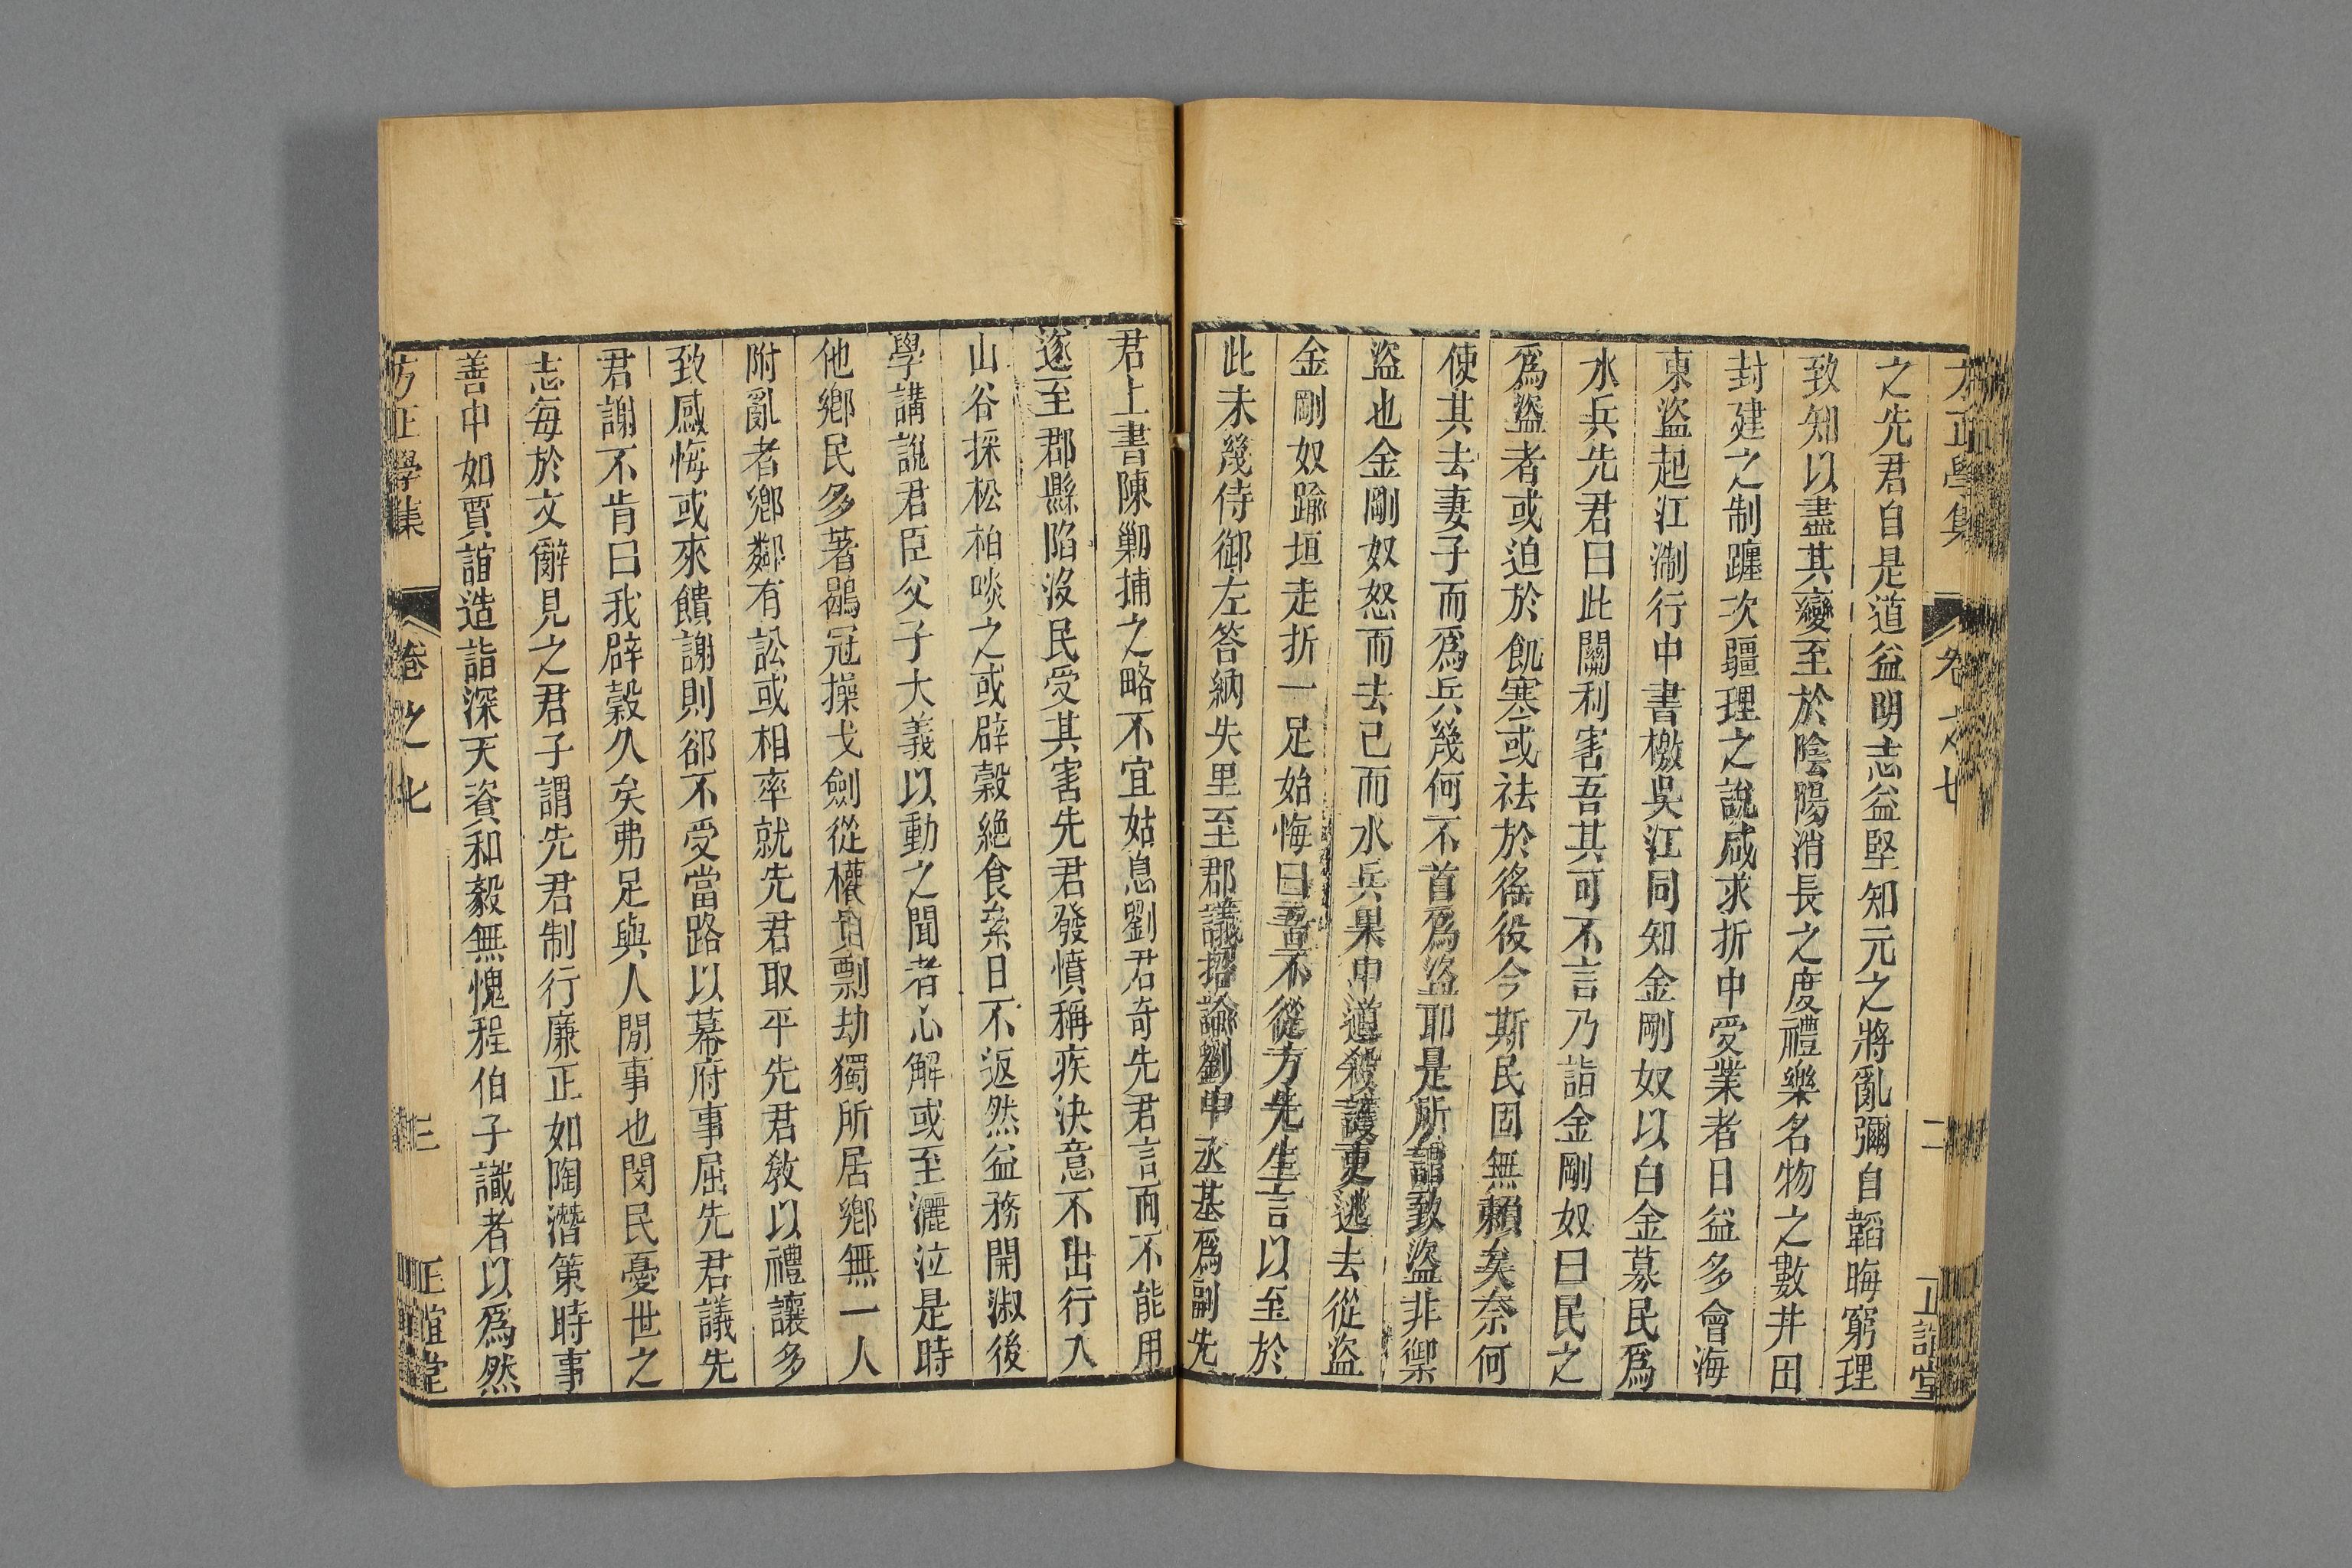 方正學集 卷之七 二 正誼堂
之先君自是道益明志益堅知元之將亂彌自韜晦窮理
致知以盡其變至於陰陽消長之度禮樂名物之數井田
封建之制躔次疆理之說咸求折中受業者日益多會海
東盜起江淛行中書檄吳江同知金剛奴以白金募民爲
水兵先君曰此關利害吾其可不言乃詣金剛奴曰民之
爲盜者或迫於飢寒或祛於徭役今斯民固無賴矣奈何
使其去妻子而爲兵幾何不首爲盜耶是所謂致盜非禦
盜也金剛奴怒而去已而水兵果中道殺護吏逃去從盜
金剛奴踰垣走折一足始悔曰吾不從方先生言以至於
此未幾侍御左答納失里至郡議招諭劉中丞基爲副先
君上書陳勦捕之略不宜姑息劉君奇先君言而不能用
遂至郡縣陷沒民受其害先君發憤稱疾決意不出行入
山谷採松柏啖之或辟穀絕食絫日不返然益務開淑後
學講說君臣父子大義以動之聞者心解或至灑泣是時
他鄉民多著鶡冠操戈劍從權自剽劫獨所居鄉無一人
附亂者鄉鄰有訟或相率就先君取平先君敎以禮讓多
致感悔或來饋謝則郤不受當路以幕府事屈先君議先
君謝不肯曰我辟穀久矣弗足與人閒事也閔民憂世之
志每於文辭見之君子謂先君制行廉正如陶潛策時事
善中如賈誼造詣深天資和毅無愧程伯子識者以爲然
方正學集 卷之七 三 正誼堂